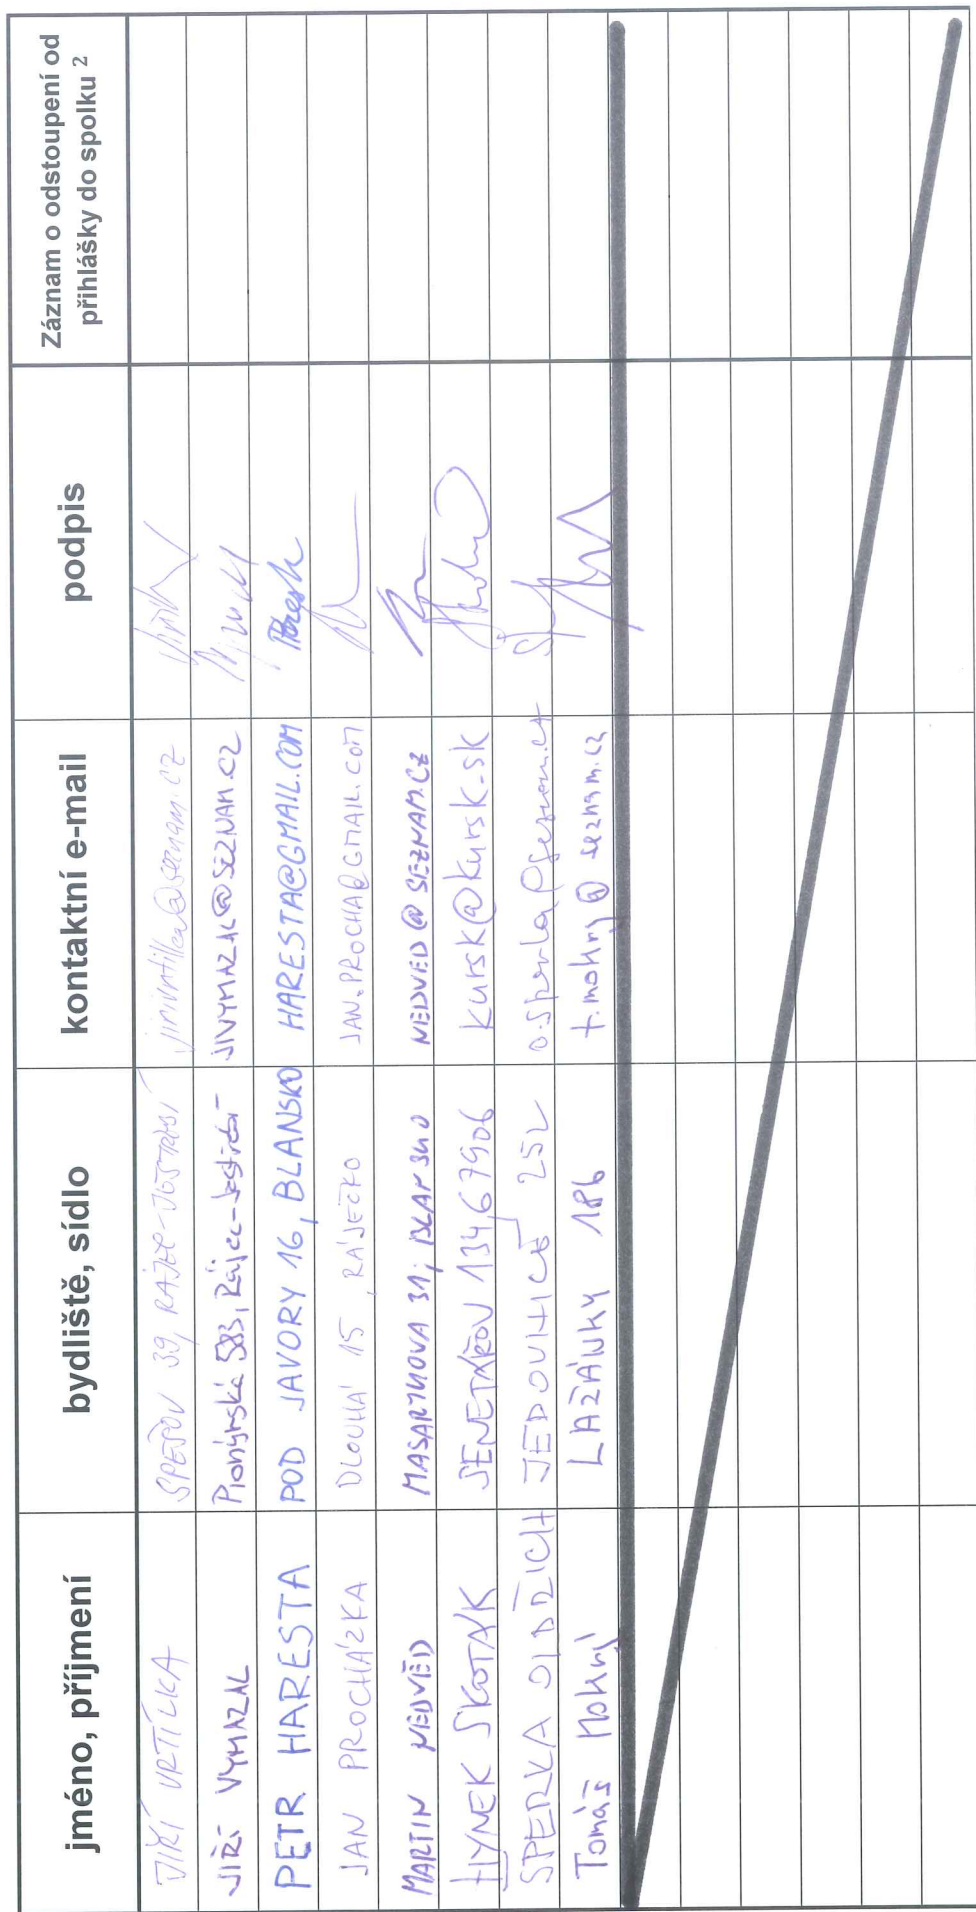 jméno, příjmení bydliště, sídlo kontaktní e-mail podpis Záznam o odstoupení od
přihlášky do spolku 2
JIŘÍ VRTÍLKA SPEŠOV 39, RÁJEC-JESTŘEBÍ jirivrtilka@seznam.cz
JIŘÍ VYMAZAL Pionýrská 583, Rájec-Jestřebí JIVYMAZAL@SEZNAM.CZ
PETR HARESTA POD JAVORY 16, BLANSKO HARESTA@GMAIL.COM
JAN PROCHÁZKA DLOUHÁ 15, RÁJEČKO JAN.PROCHA@GMAIL.COM
MARTIN NEDVĚD MASARYKOVA 31, BLANSKO NEDVED@SEZNAM.CZ
HYNEK SKOTÁK SENETÁŘOV 134, 67906 kursk@kursk.sk
SPERKA OLDŘICH JEDOVNICE 252 o.sperka@seznam.cz
Tomáš Mokrý LAŽÁNKY 186 t.mokry@seznam.cz